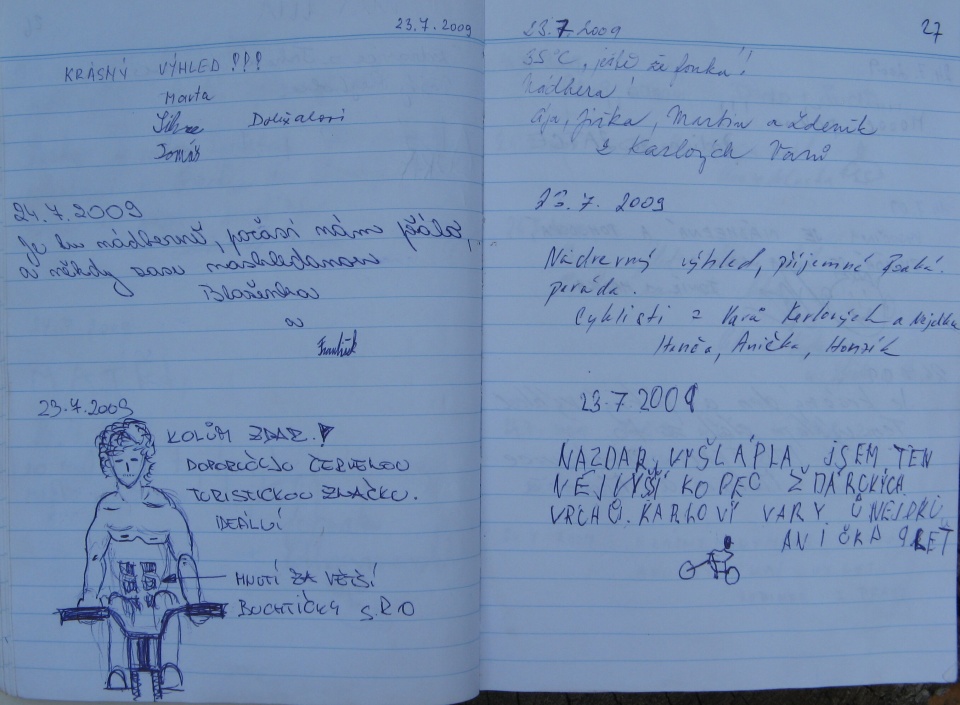 23.7.2009
KRÁSNÝ VÝHLED !!!
Marta
Doležalovi
Tomáš
24.7.2009
Je tu nádherně, počasí nám přálo,
a někdy zase nashledanou
Blaženka
a
František
23.7.2009
KOLŮM ZDAR!
DOPORUČUJU ČERVENOU
TURISTICKOU ZNAČKU.
IDEÁLNÍ
HNUTÍ ZA VĚTŠÍ
BUCHTIČKY s.R.O
23.7.2009
27
35°C, ještě že fouká!
Nádhera
Ája, Jirka, Martin a Zdeněk
z Karlových Varů
23.7.2009
Nádherný výhled, příjemně fouká.
paráda.
Cyklisti z Varů Karlových a Nejdku
Hanča, Anička, Honzík
23.7.2009
NAZDAR, VYŠLÁPLA JSEM TEN
NEJVYŠŠÍ KOPEC ŽDÁRCKÝCH
VRCHŮ. KARLOVY VARY Ú NEJDKU
ANIČKA 9 LET